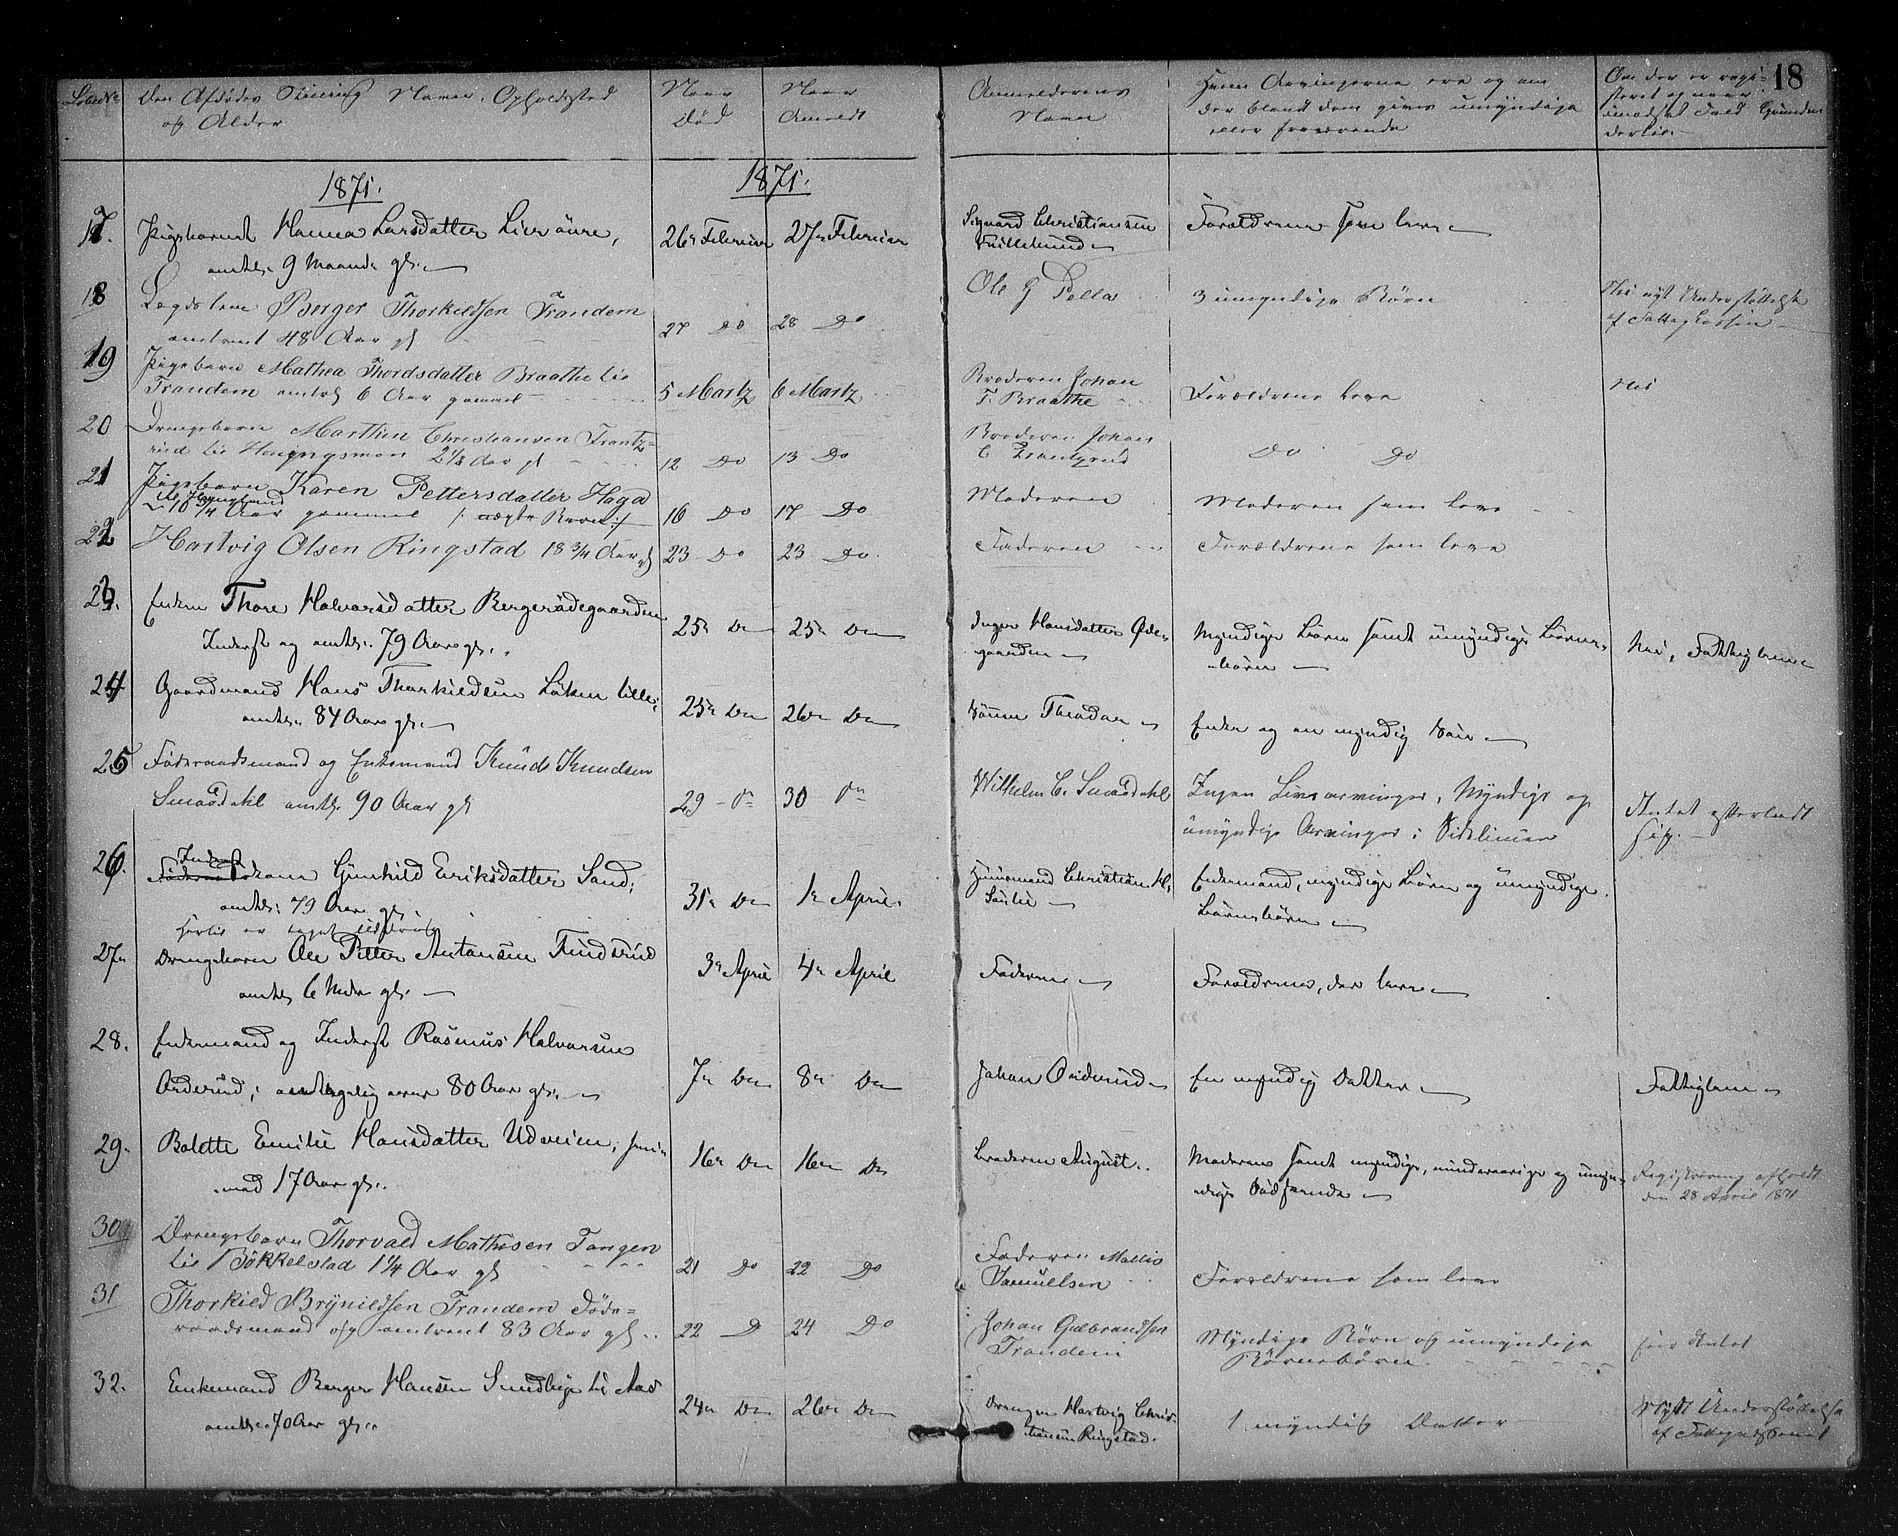 18
Løbe No
Den Afdødes Stilling, Navn, Opholdssted
og Alder
Naar
Død
Naar
Anmeldt
Anmelderens
Navn
Hvem Arvingerne ere og om
der blandt dem gives umyndige
eller fraværende
1871.
1871.
17.
Pigebarnet Hanna Larsdatter
amtl. 9 Maaned. gl.
26 Februar
27 Februar
Sigvard Christiansen
Forældrene som leve
18
Lægdslem Berger Thorkildsen Trandem
omtrent 48 Aar gl
27 Do
28 Do
Ole G Pella
3 umyndige Børn
Nei nydt Understøttelse
af Fattigkassen
19
Pigebarn Mathea Thordsdatter Braathe lie
Trandem amtlg 6 Aar gammel
5 Martz
6 Martz
Broderen Johan
T. Braathe
Forældrene leve
Nei
20
Drengebarn Marthin Christiansen Frantz-
rud
12 Do
13 Do
Broderen Johan
C Frantzrud
Do Do
21
Pigebarn Karen Pettersdatter Haga
Aar gammel /: uægte Barn :/
16 Do
17 Do
Moderen
Moderen som leve
22
Hartvig Olsen Ringstad 18 3/4 Aar gl
23 Do
23 Do
Faderen
Forældrene som leve
23.
Enken Thore Halvorsdatter Bergerødegaarden
Inderst og amtl. 79 Aar gl.
25 Do
25 Do
Inger Hansdatter Øde-
gaarden
Myndige Børn samt umyndige Børne-
børn
Nei, Fattiglem
24
Gaardmand Hans Thorkildsen Løken lille,
amtl. 84 Aar gl.
25 Do
26 Do
Sønnen Theodor
Enke og en myndig Søn
25
Føderaadsmand og Enkemand Knud Knudsen
Smaadahl amtl. 90 Aar gl
29 Do
30 Do
Wilhelm C. Smaadahl
Ingen Livsarvinger, Myndige og
umyndige Arvinger i Sidelinien
Intet efterladt
sig.
26.
Inderst
Gunhild Eriksdatter Sand,
amtl. 79 Aar gl.
31 Do
1 April
Huusmand Christian H.
Enkemand, myndige Børn og umyndige
Børnebørn
27
Drengebarn Ole Petter Antonsen Findsrud
amtl 6 Mdr gl.
3 April
4 April
Faderen
Forældrene, der leve
28.
Enkemand og Inderst Rasmus Halvorsen
Orderud, antagelig over 80 Aar gl.
7 Do
8 Do
Johan Orderud
En myndig Datter
Fattiglem
29.
Bolette Emilie Hansdatter Udveien,
17 Aar gl.
16 Do
16 Do
Broderen August.
Moderen samt myndige, mindreaarige og umyn-
dige Sødskende
Registrering afholdt
den 28 April 1871
30
Drengebarn Thorvald Mathisen Tangen
lie Bøkkelstad 1 1/4 Aar gl
21 Do
22 Do
Faderen Mathis
Samuelsen
Forældrene som leve
31
Thorkild Brynildsen Trandem Føde-
raadsmand og omtrent 83 Aar gl
22 D
24 Do
Johan Gulbrandsen
Trandem
Myndige Børn og umyndige
Børnebørn
Intet
32.
Enkemand Berger Hansen Sundbye lie Aas
amtl. 70 Aar gl.
24 Do
26 Do
Drengen Hartvig Chris-
tiansen Ringstad.
1 myndig Datter
Nydt Understøttelse
af